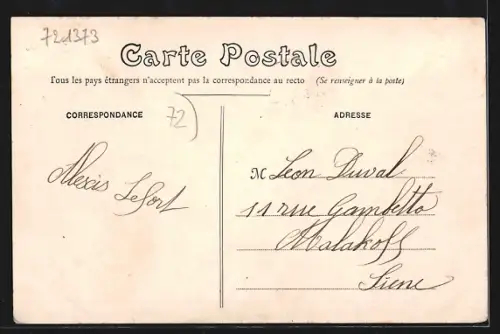 721373
Carte Postale
Tous les pays étrangers n'acceptent pas la correspondance au recto (Se renseigner à la poste)
CORRESPONDANCE
72
ADRESSE
Alexis Lefort
M Leon Duval
11 rue Gambetta
Malakoff
Siene